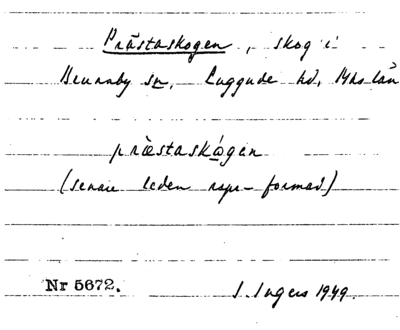 Prästaskogen, skog i
Brunnby sn, Luggude hd, Mhs län
præstaskógan
(senare leden rspr-formad)
Nr 5672. I. Ingers 1949.